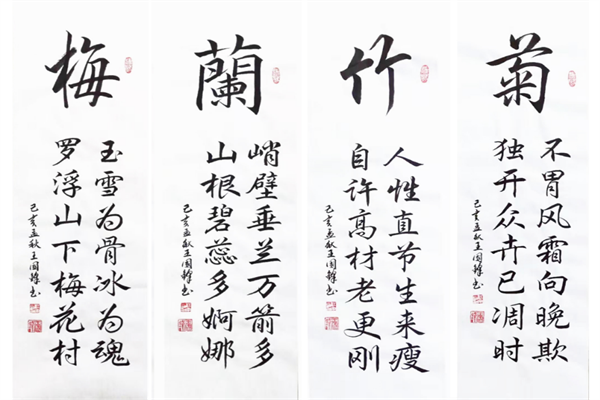 梅
玉雪为骨冰为魂
罗浮山下梅花村
己亥孟秋王国书
蘭
峭壁垂兰万箭多
山根碧蕊多婀娜
己亥孟秋王国书
竹
人性直节生来瘦
自许高材老更刚
己亥孟秋王国书
菊
不胃风霜向晚欺
独开众卉已凋时
己亥孟秋王国书